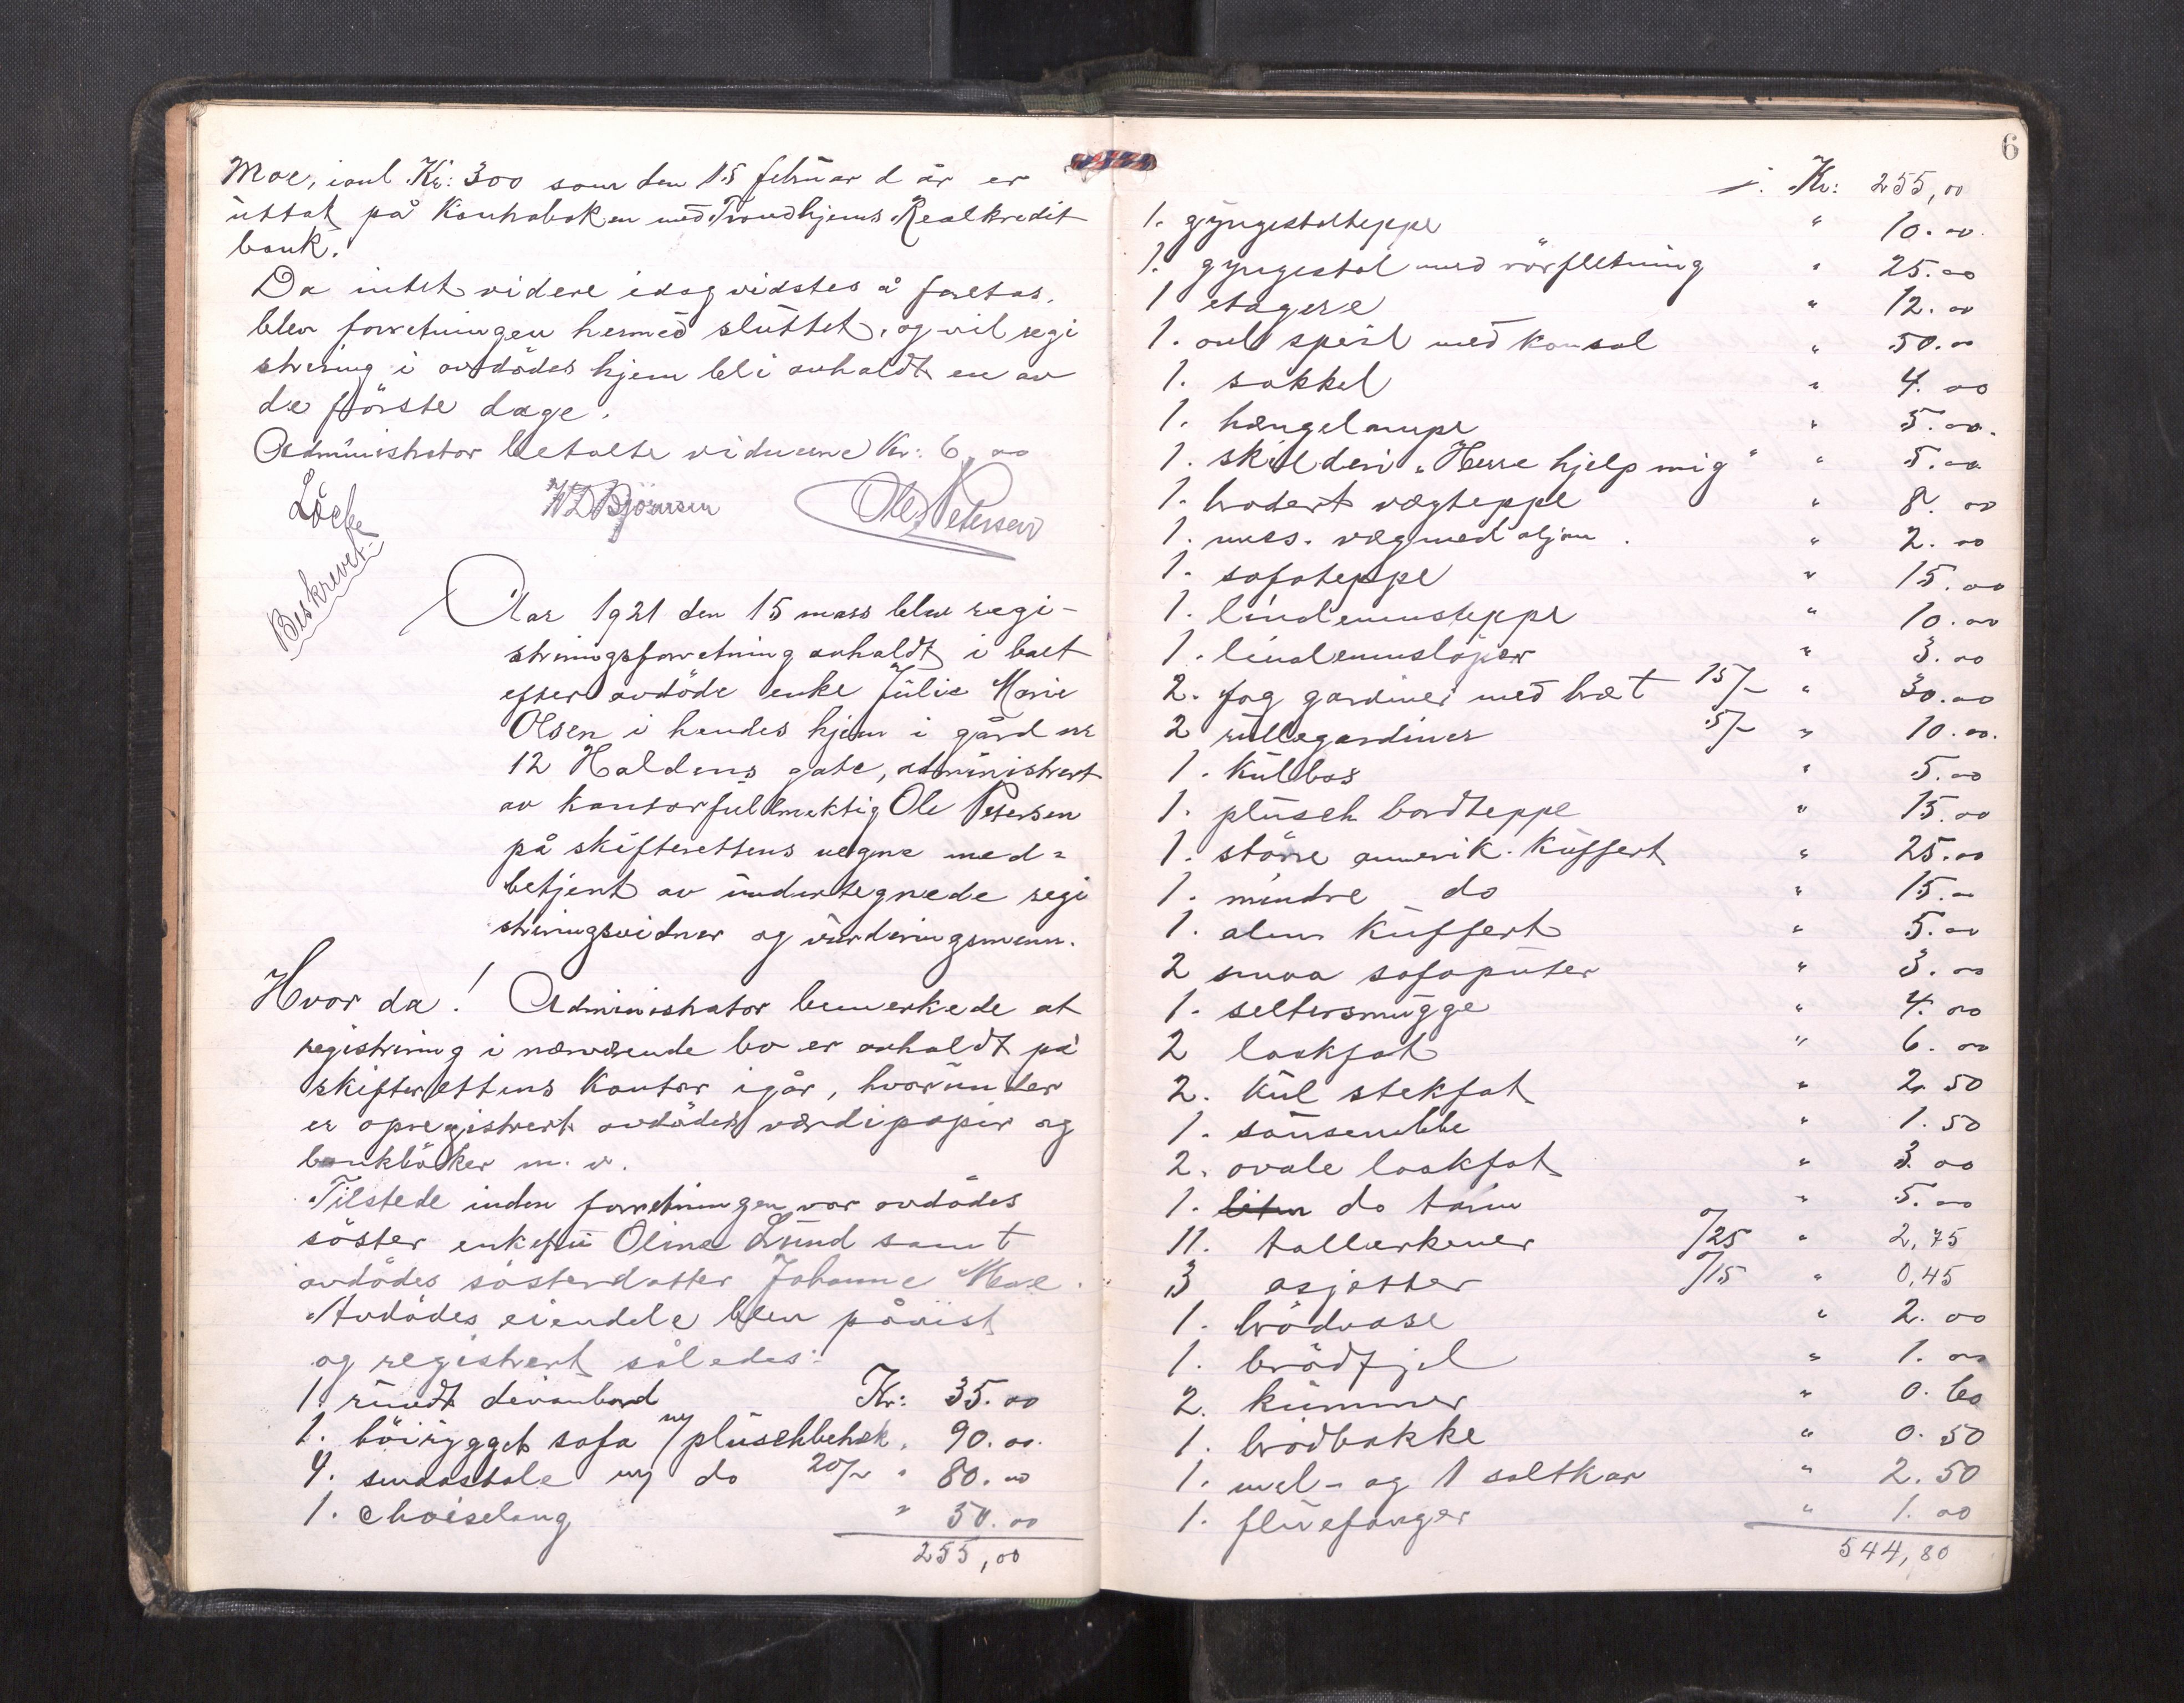 Moe, ialt Kr: 300 som den 15 februar d år er
uttat på Kontraboken med Trondhjems Realkredit
bank.
Da intet videre idag vidstes å foretas,
blev forretningen hermed sluttet, og vil regi
strering i avdødes hjem bli avholdt en av
de første dage.
Administrator betalte vidnerne Kr: 6,00
Löcke
H L Bjørnsen
Ole Petersen
Beskrevet.
Aar 1921 den 15 mars blev regi-
streringsforretning avholdt i boet
efter avdøde enke Julie Marie
Olsen i hendes hjem i gård nr
12 Haldens gate, administrert
av kontorfuldmektig Ole Petersen
på skifterettens vegne med-
betjent av undertegnede regi
streringsvidner og vurderingsmenn.
Hvor da! Administrator bemerkede at
registrering i nærværende bo er avholdt på
skifterettens kontor igår, hvorunder
er opregistrert avdødes værdipapir og
bankbøker m. v.
Tilstede inden forretningen var avdødes
söster enkefru Oline Lund samt
avdødes sösterdatter Johanne Moe.
Avdødes eiendele blev påvist
og registrert således:
1. rundt divanbord Kr: 35.00
1. höirygget sofa m/ plüschbetræk " 90.00
4. smaastole m/ do 20/- " 80.00
1. choiselong " 50.00
255,00
6
t. Kr: 255,00
1. gyngestolteppe " 10.00
1. gyngestol med rörfletning " 25.00
1 etagere " 12.00
1. ovl speil med konsol " 50.00
1. sokkel " 4.00
1. hængelampe " 5.00
1. skilderi "Herre hjelp mig" " 5.00
1. brodert vægteppe " 8.00
1. mess. vægmedaljon " 2.00
1. sofateppe " 15.00
1. lindemusteppe " 10.00
1. lindemuslöper " 3.00
2. fag gardiner med bræt 15/- " 30.00
2 rullegardiner 5/- " 10.00
1. Kulbos " 5.00
1. plüsch bordteppe " 15.00
1. större amerik. Kuffert " 25.00
1. mindre do " 15.00
1. alm Kuffert " 5.00
2 smaa sofaputer " 3.00
1. seltersmugge " 4.00
2 laakfat " 6.00
2. Kul stekfat " 2.50
1. sausenebbe " 1.50
2. ovale laakfat " 3.00
1. liten do tarin " 5.00
11. tallerkener /25 " 2,75
3 asjetter /15 " 0,45
1. brödvase " 2.00
1. brödfjel " 1.00
2. kummer " 0.60
1. brödbakke " 0.50
1. mel- og 1 saltkar " 2.50
1. fluefanger " 1.00
544,80